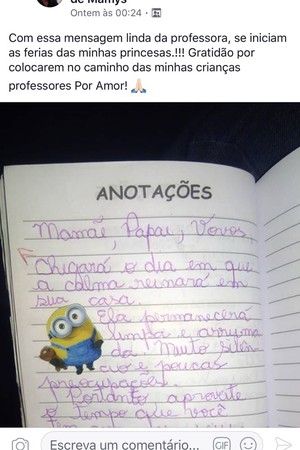 de Mamys
Ontem às 00:24 ·
Com essa mensagem linda da professora, se iniciam
as ferias das minhas princesas.!!! Gratidão por
colocarem no caminho das minhas crianças
professores Por Amor!
ANOTAÇÕES
Mamãe, Papai, Vovós,
Chegará o dia em que
a calma reinará em
sua casa.
Ela permanecerá
limpa e arruma
da. Muito silên
cio e poucas
preocupações.
Portanto, aproveite
o tempo que você
tem
Escreva um comentário...
GIF